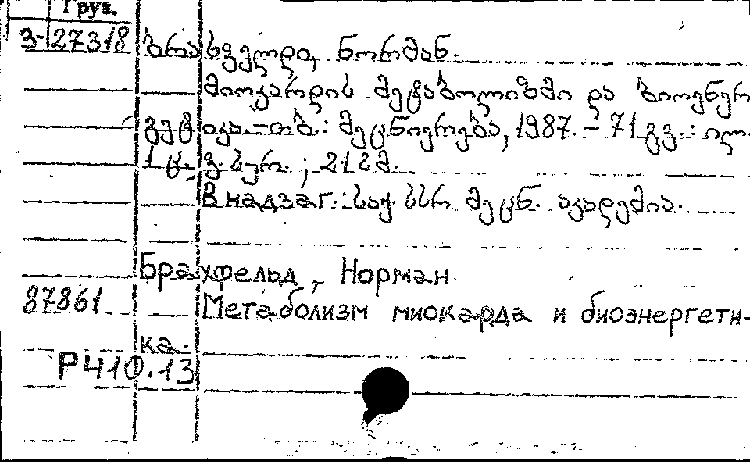 Груз.
3-27318 ბრახფელდი, ნორმან.
მიოკარდის მეტაბოლიზმი და ბიოენერ
გეტიკა.-თბ.: მეცნიერება, 1987. - 71 გვ.: ილ.
1 ც. ; 21 სმ.
В надзаг.: საქ. სსრ მეცნ. აკადემია.
Брахфельд, Норман
87861 Метаболизм миокарда и биоэнергети-
ка.
Р410.13